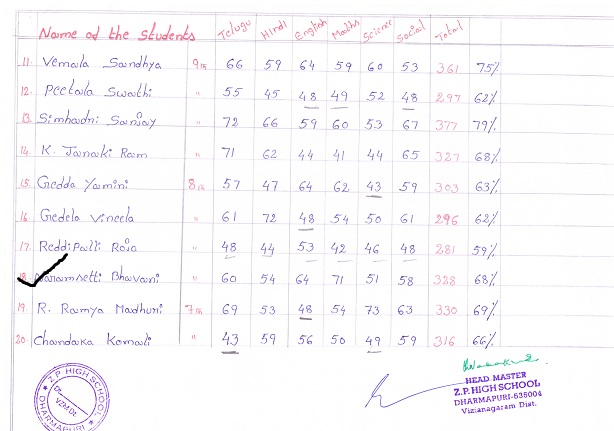 Name of the Students Telugu Hindi English Maths Science Social Total
11. Vemala Sandhya 9th 66 59 64 59 60 53 361 75%
12. Peetala Swathi " 55 45 48 49 52 48 297 62%
13. Simhadri Sanjay " 72 66 59 60 53 67 377 79%
14. K. Janaki Ram " 71 62 44 41 44 65 327 68%
15. Gedda Yamini 8th 57 47 64 62 43 59 303 63%
16. Gedela Vineela " 61 72 48 54 50 61 296 62%
17. Reddipalli Roja " 48 44 53 42 46 48 281 59%
18. Bhavani " 60 54 64 71 51 58 328 68%
19. R. Ramya Madhuri 7th 69 53 48 54 73 63 330 69%
20. Chandaka Komali " 43 59 56 50 49 59 316 66%
Z.P. HIGH SCHOOL
VZM Dt.
DHARMAPURI
HEAD MASTER
Z.P. HIGH SCHOOL
DHARMAPURI-535004
Vizianagaram Dist.